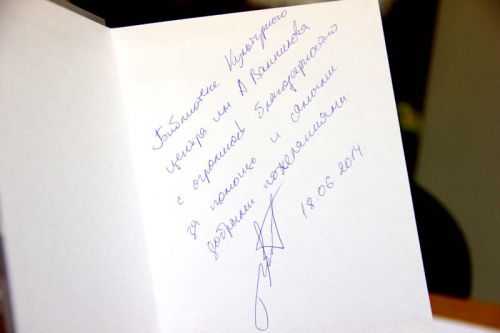 Библиотеке Культурного
центра им А Вампилова
с огромной благодарностью
за помощь и самыми
добрыми пожеланиями.
18.06 2014